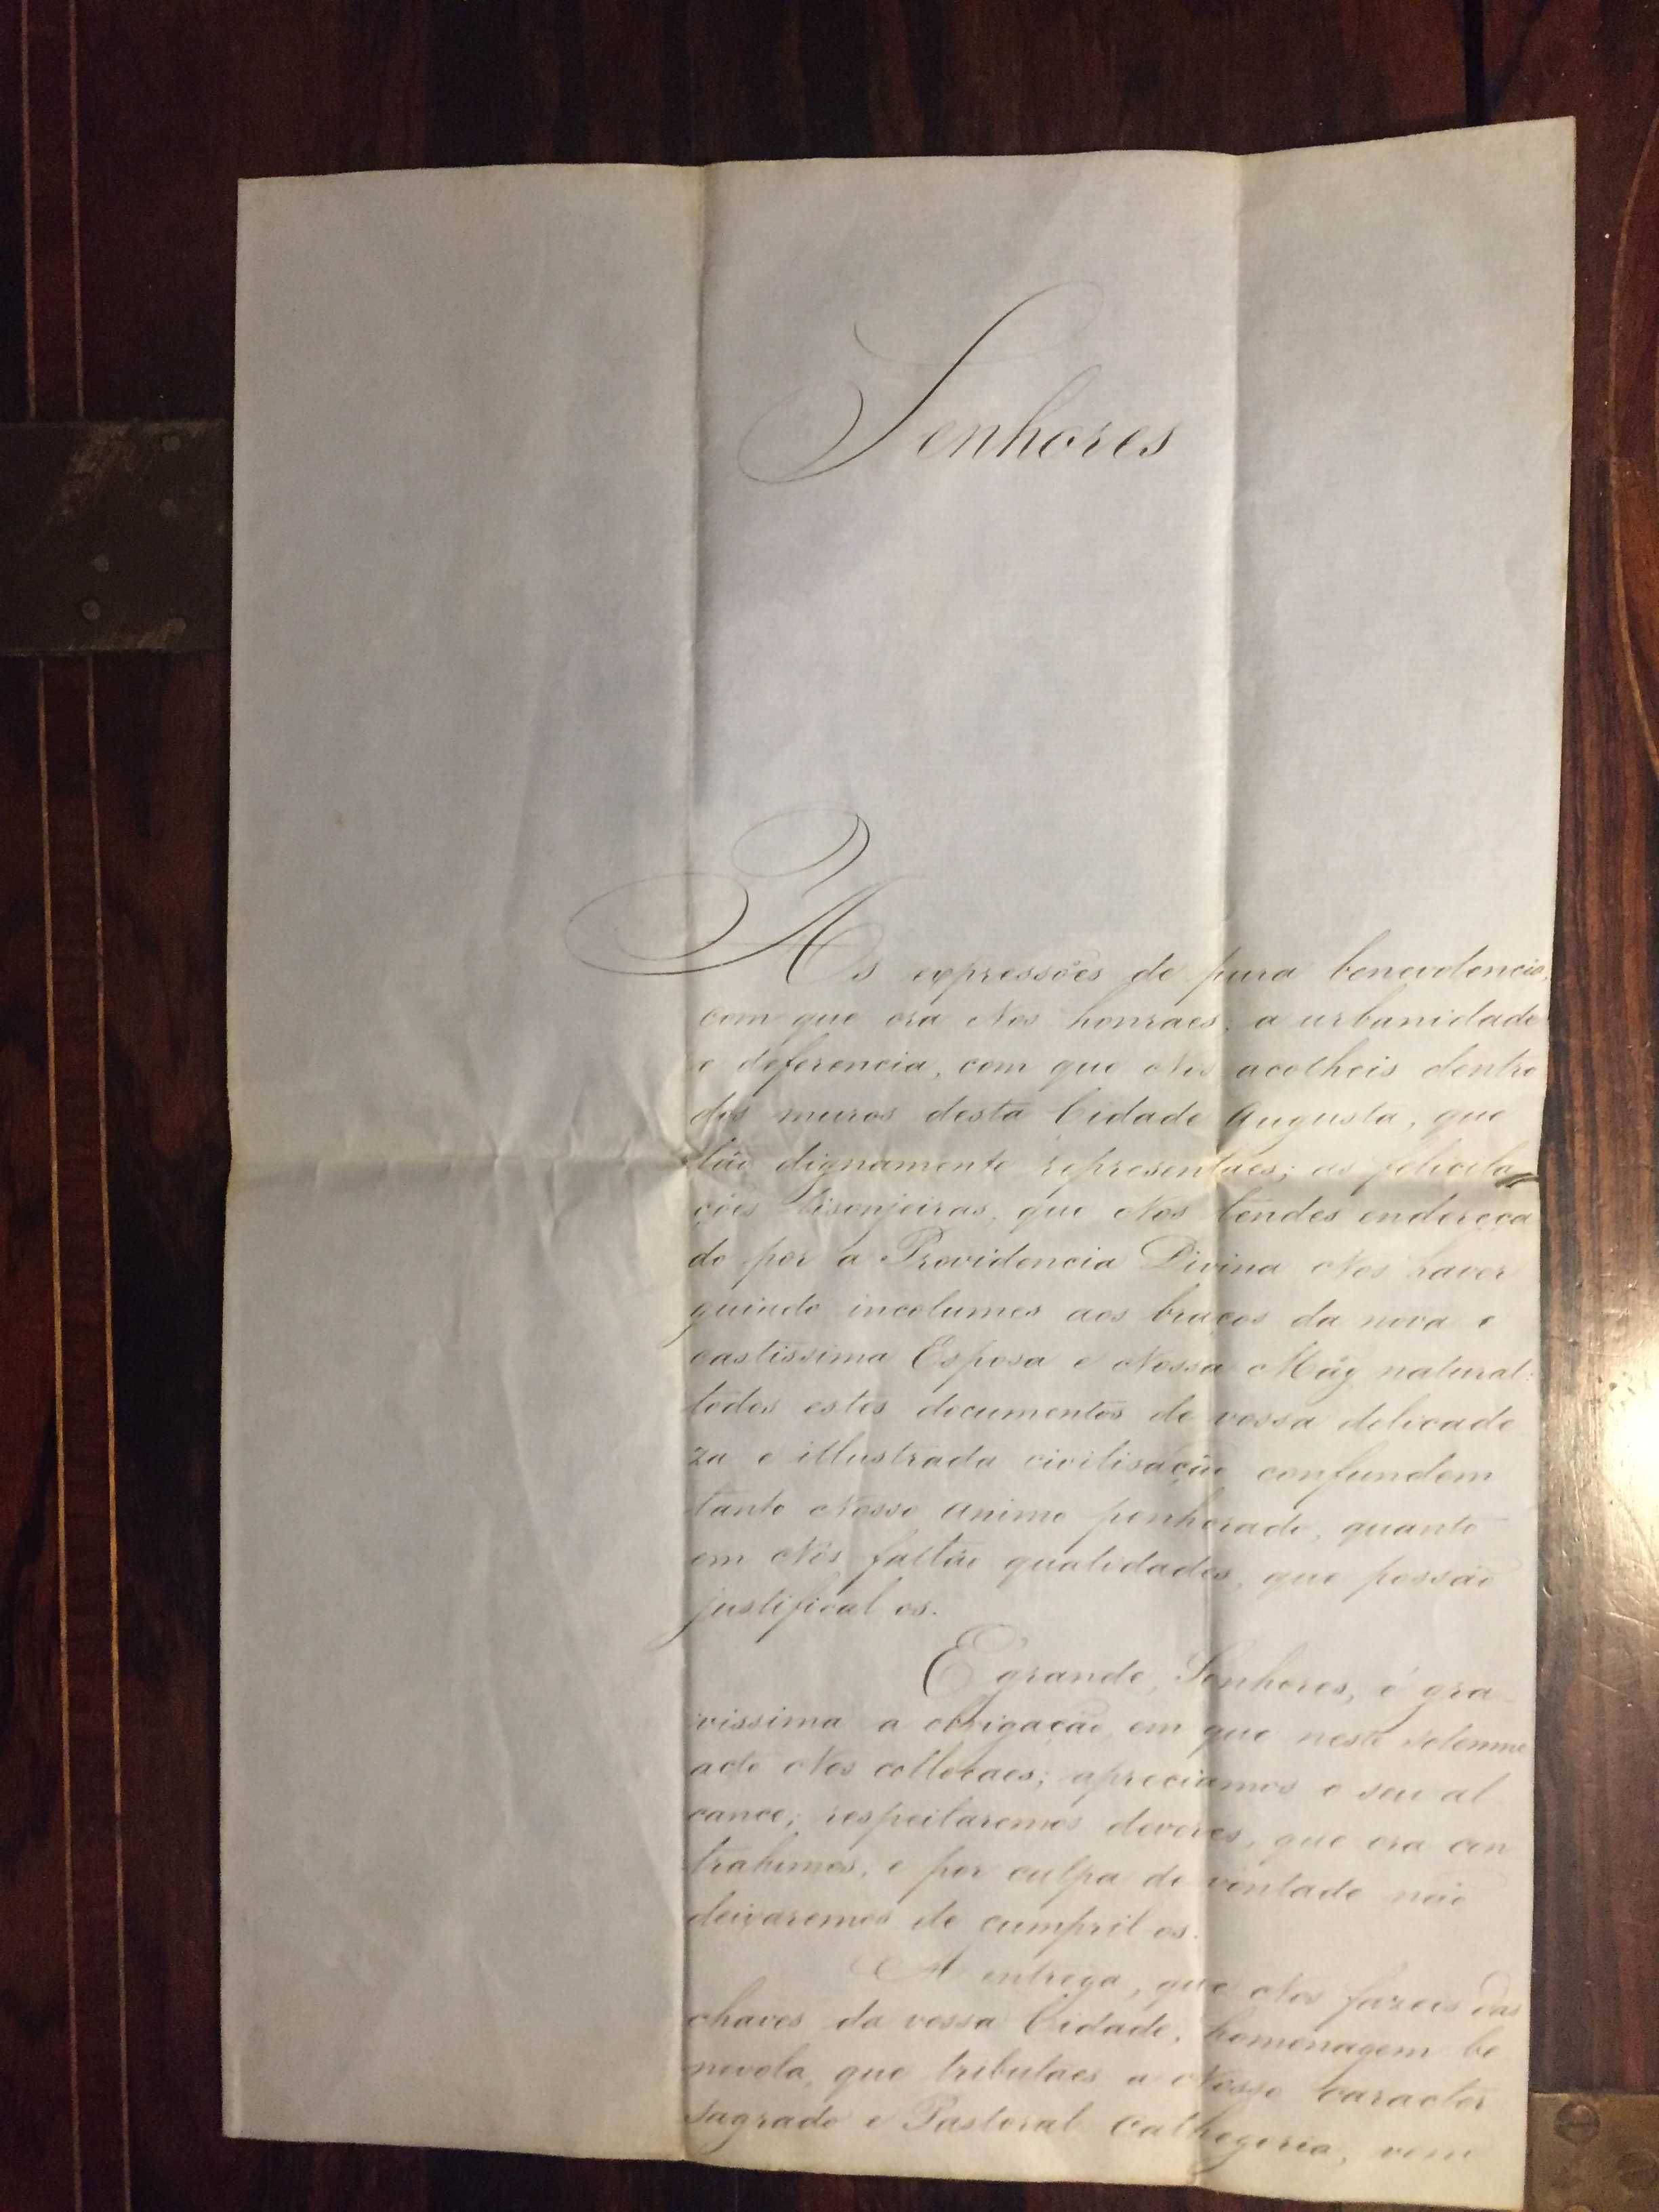 Senhores
As expressões de pura benevolencia,
com que ora Nos honraes, a urbanidade
e deferencia, com que Nos acolheis dentro
dos muros desta Cidade Augusta, que
tão dignamente representaes; as felicita
ções lisonjeiras, que Nos tendes endereça
do por a Providencia Divina Nos haver
guiado incolumes aos braços da nova e
castissima Esposa e Nossa Mãy natural:
todos estes documentos de vossa delicade
za e illustrada civilisação confundem
tanto Nosso animo penhorado, quanto
em Nós faltão qualidades, que possão
justifical os.
É grande, Senhores, é gra
vissima a obrigação, em que neste solemne
acto Nos collocaes; apreciamos o seu al
cance; respeitaremos deveres, que ora con
trahimos, e por culpa de vontade não
deixaremos de cumpril os.
A entrega, que Nos fazeis das
chaves da vossa Cidade, homenagem be
nevola, que tributaes a Nosso caracter
sagrado e Pastoral Cathegoria, vem